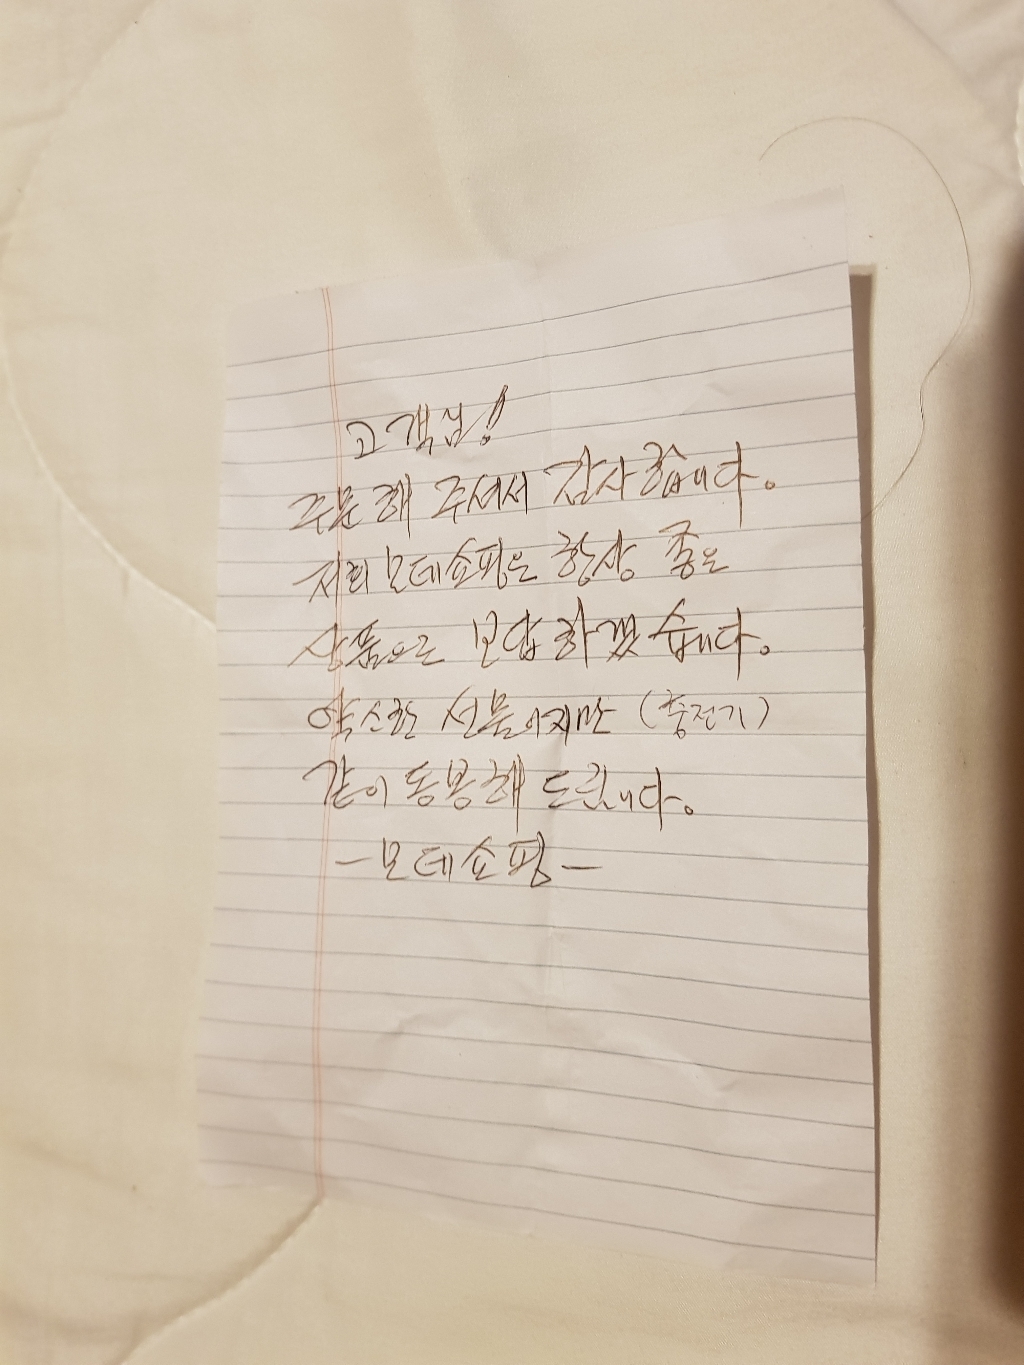 고객님!
주문해 주셔서 감사합니다.
저희 모데쇼핑은 항상 좋은
상품으로 보답하겠습니다.
약소한 선물이지만 (충전기)
같이 동봉해 드립니다.
-모데쇼핑-